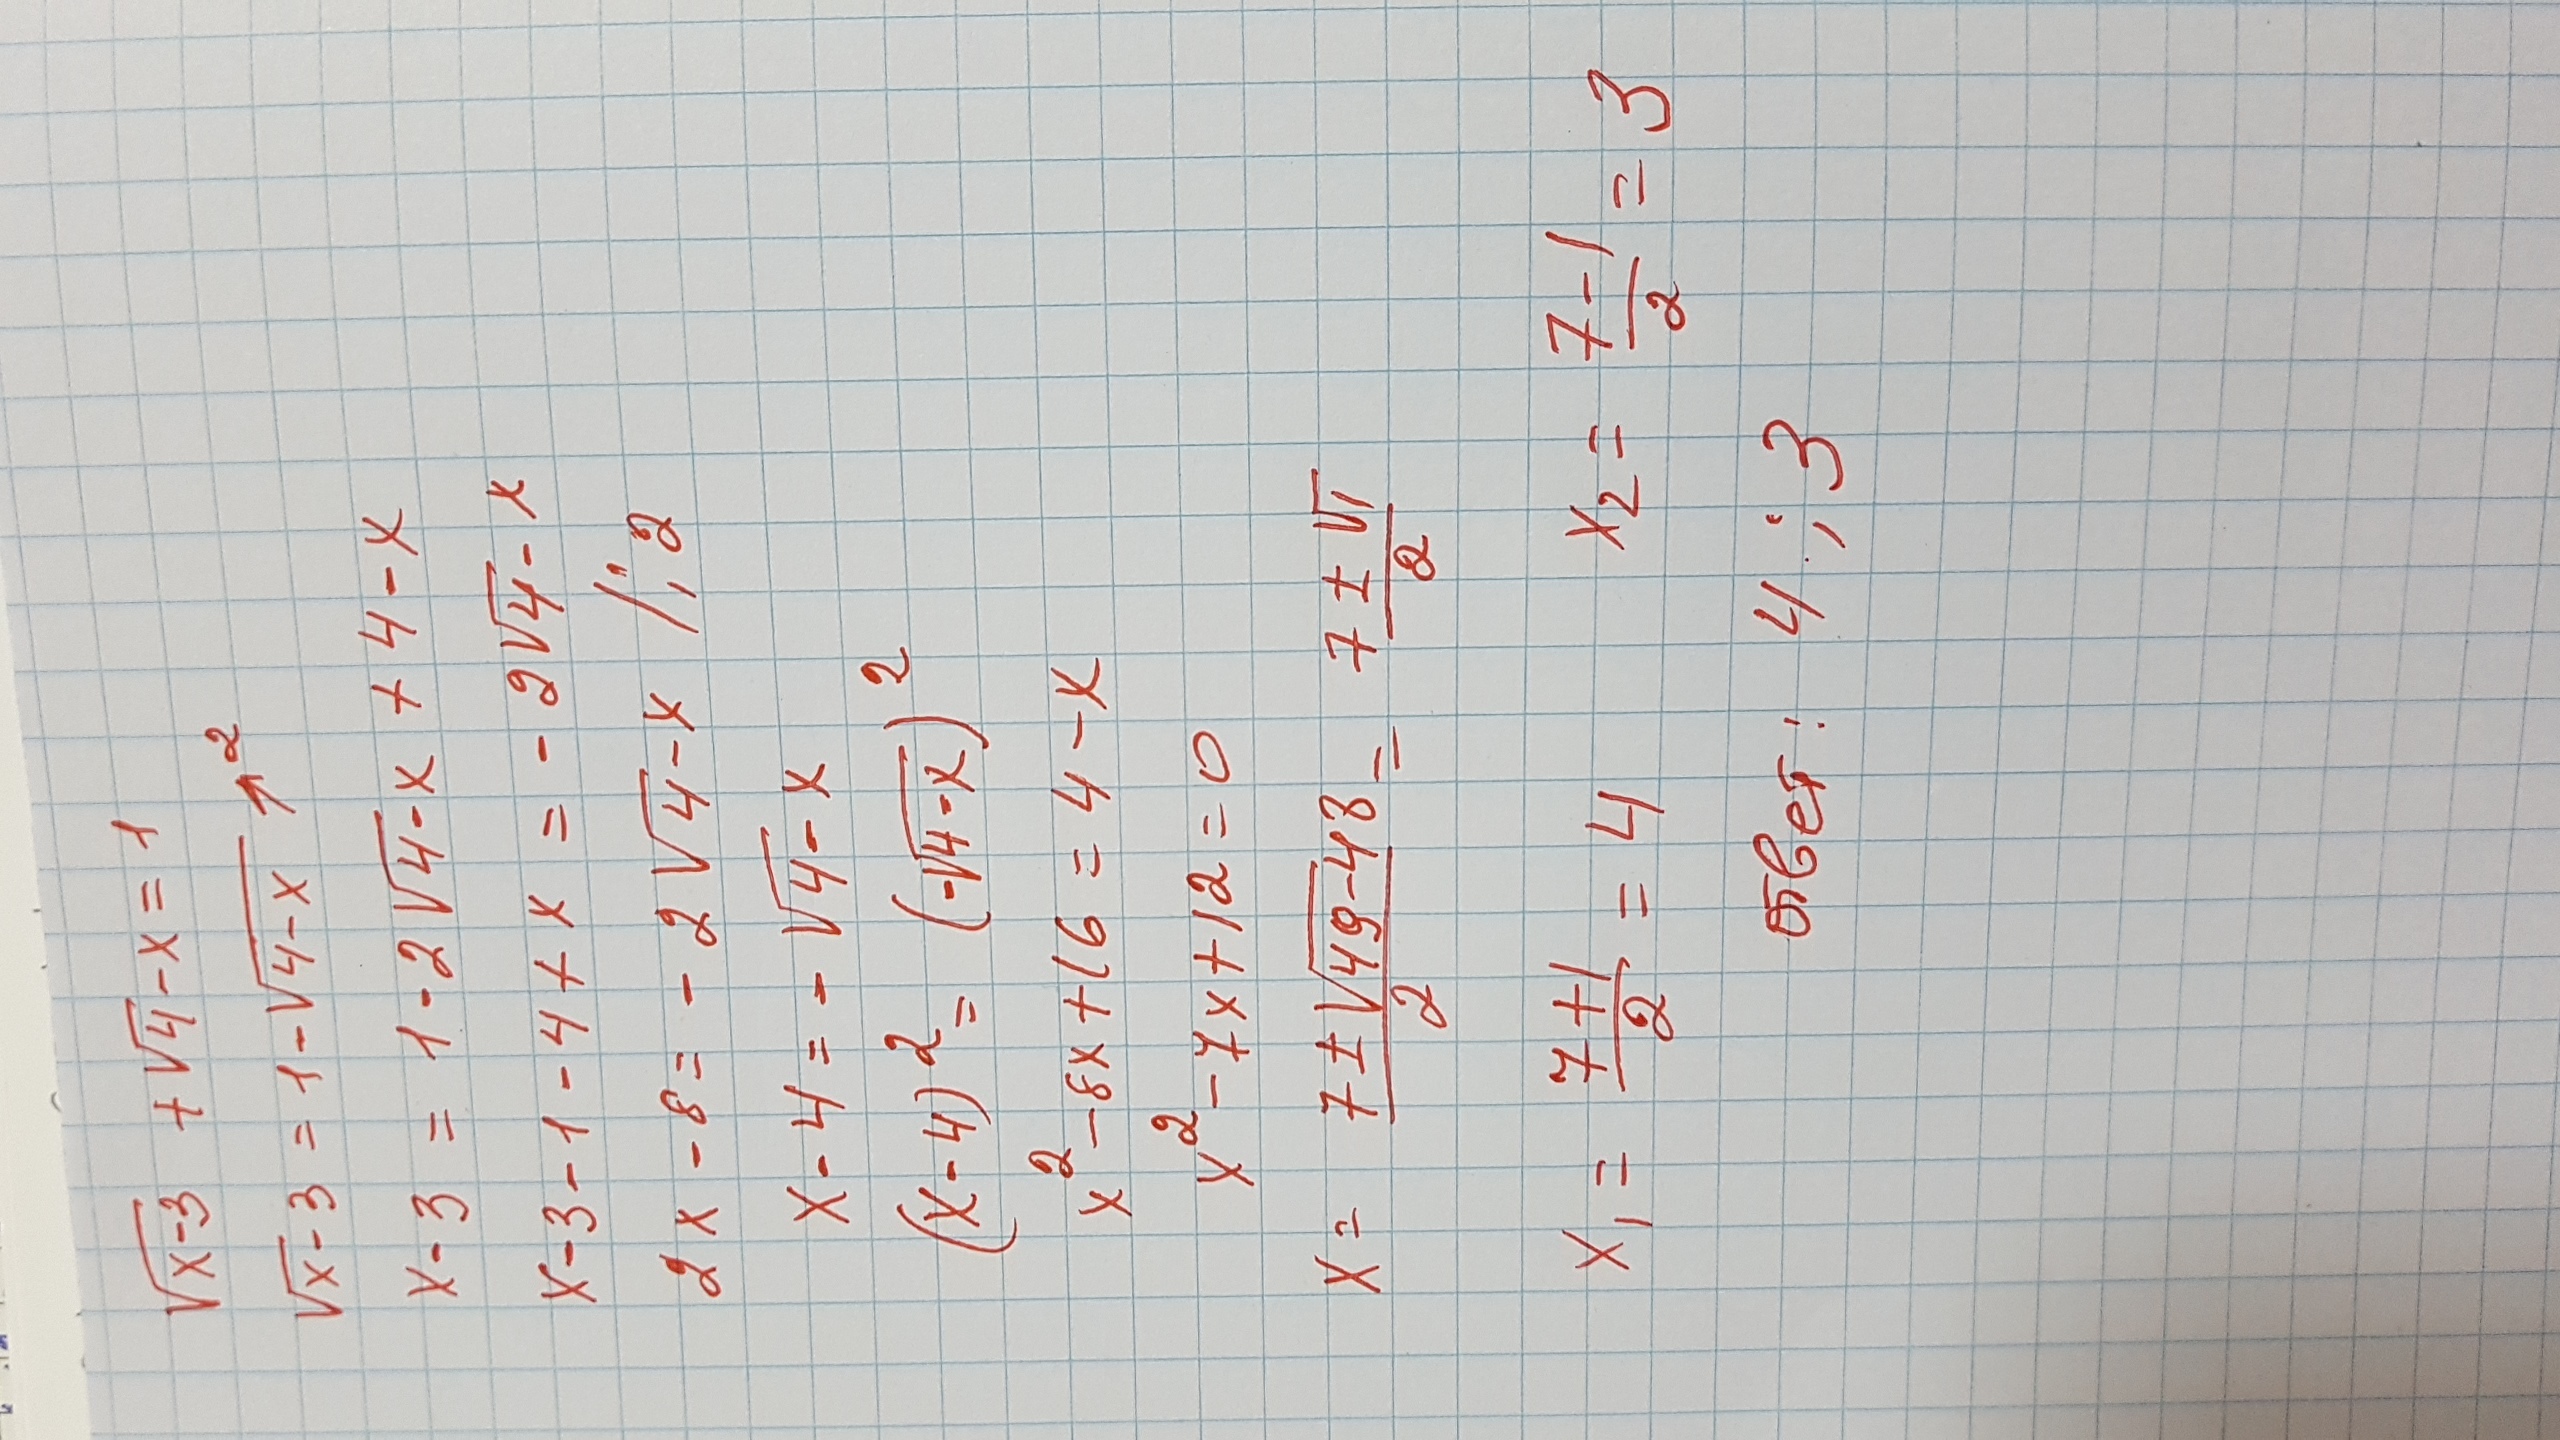 √x-3 + √4-x = 1
√x-3 = 1-√4-x ↑²
x-3 = 1-2√4-x + 4-x
x-3-1-4+x = -2√4-x
2x-8 = -2√4-x /:2
x-4 = -√4-x
(x-4)² = (-√4-x)²
x²-8x+16 = 4-x
x²-7x+12=0
x = 7±√49-48/2 = 7±√1/2
x₁ = 7+1/2 = 4 x₂ = 7-1/2 = 3
Ответ: 4; 3